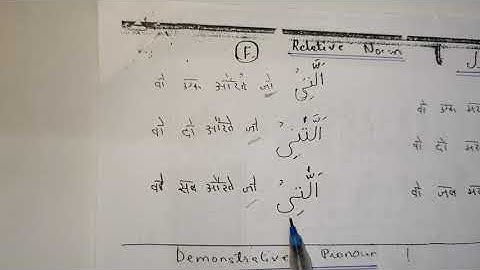 F Relative Noun
वो एक औरते जो اَلَّتِيْ
वो दो औरते जो اَلَّتَنِيْ
वो सब औरते जो اَلّٰتِيْ
वो एक
वो दो
वो जब
Demonstrative Pronoun